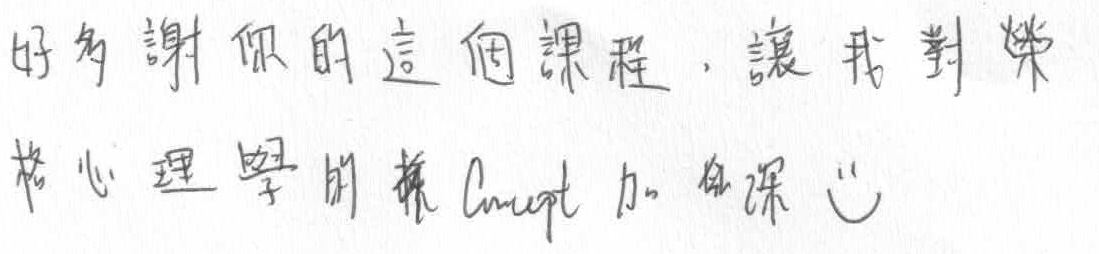 好多謝你的這個課程，讓我對榮
格心理學的 Concept 加深 :)